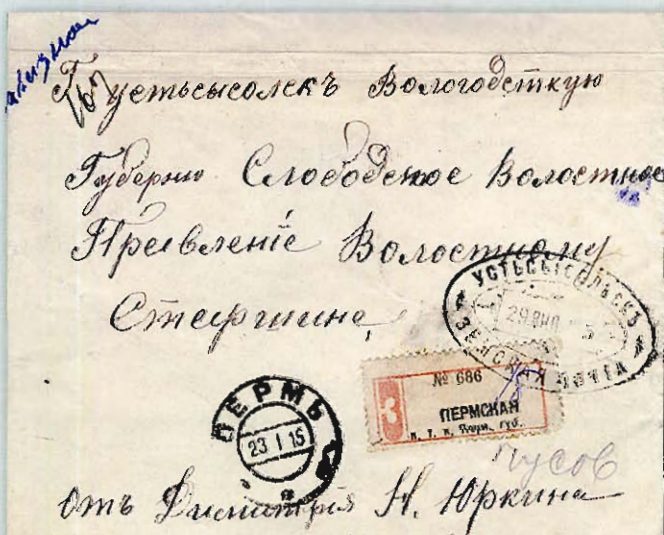 Г Устьсысолскъ Вологодсткую
Губернию Слободское Волостное
Превленіе Волостному
Старшине
УСТЬСЫСОЛЬСКЪ
29 ЯНВ 5
ЗЕМСКАЯ ПОЧТА
№ 686
ПЕРМСКАЯ
п. т. к. Перм. губ.
ПЕРМЬ
23 1 15
пусов
отъ Димитрия Н. Юркина